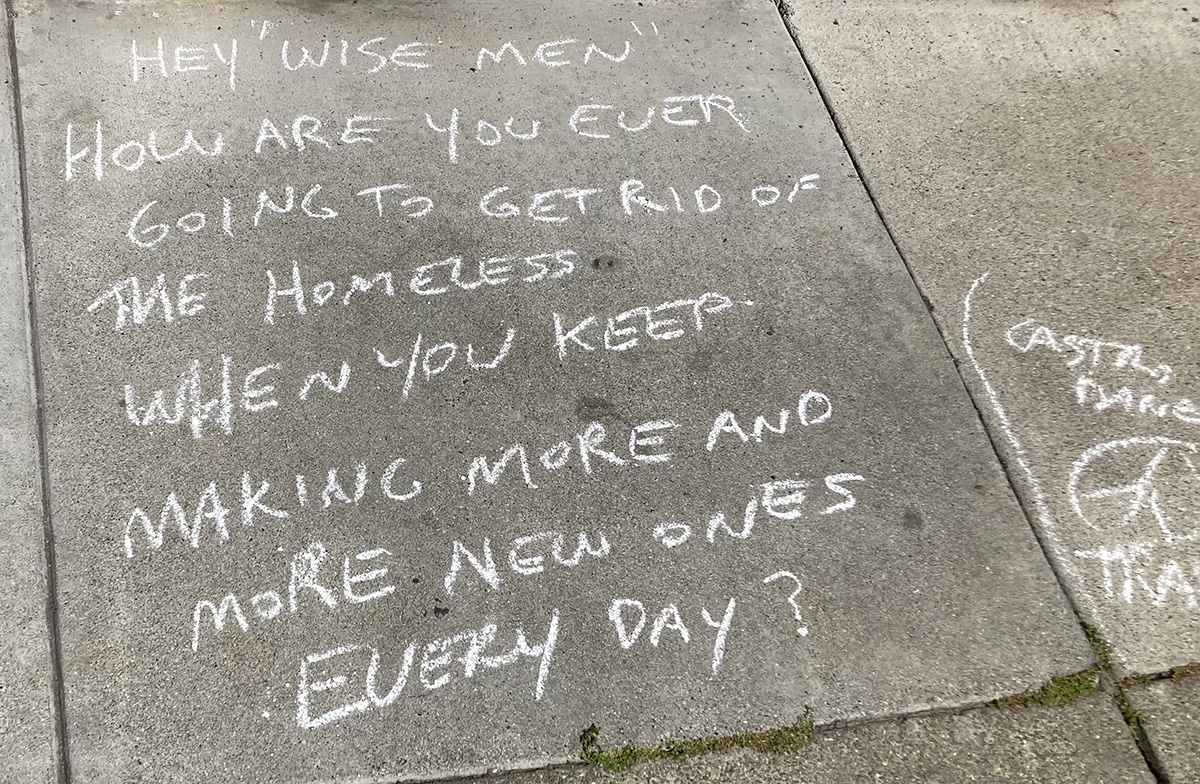 HEY "WISE MEN"
HOW ARE YOU EVER
GOING TO GET RID OF
THE HOMELESS
WHEN YOU KEEP
MAKING MORE AND
MORE NEW ONES
EVERY DAY?
CASTRO